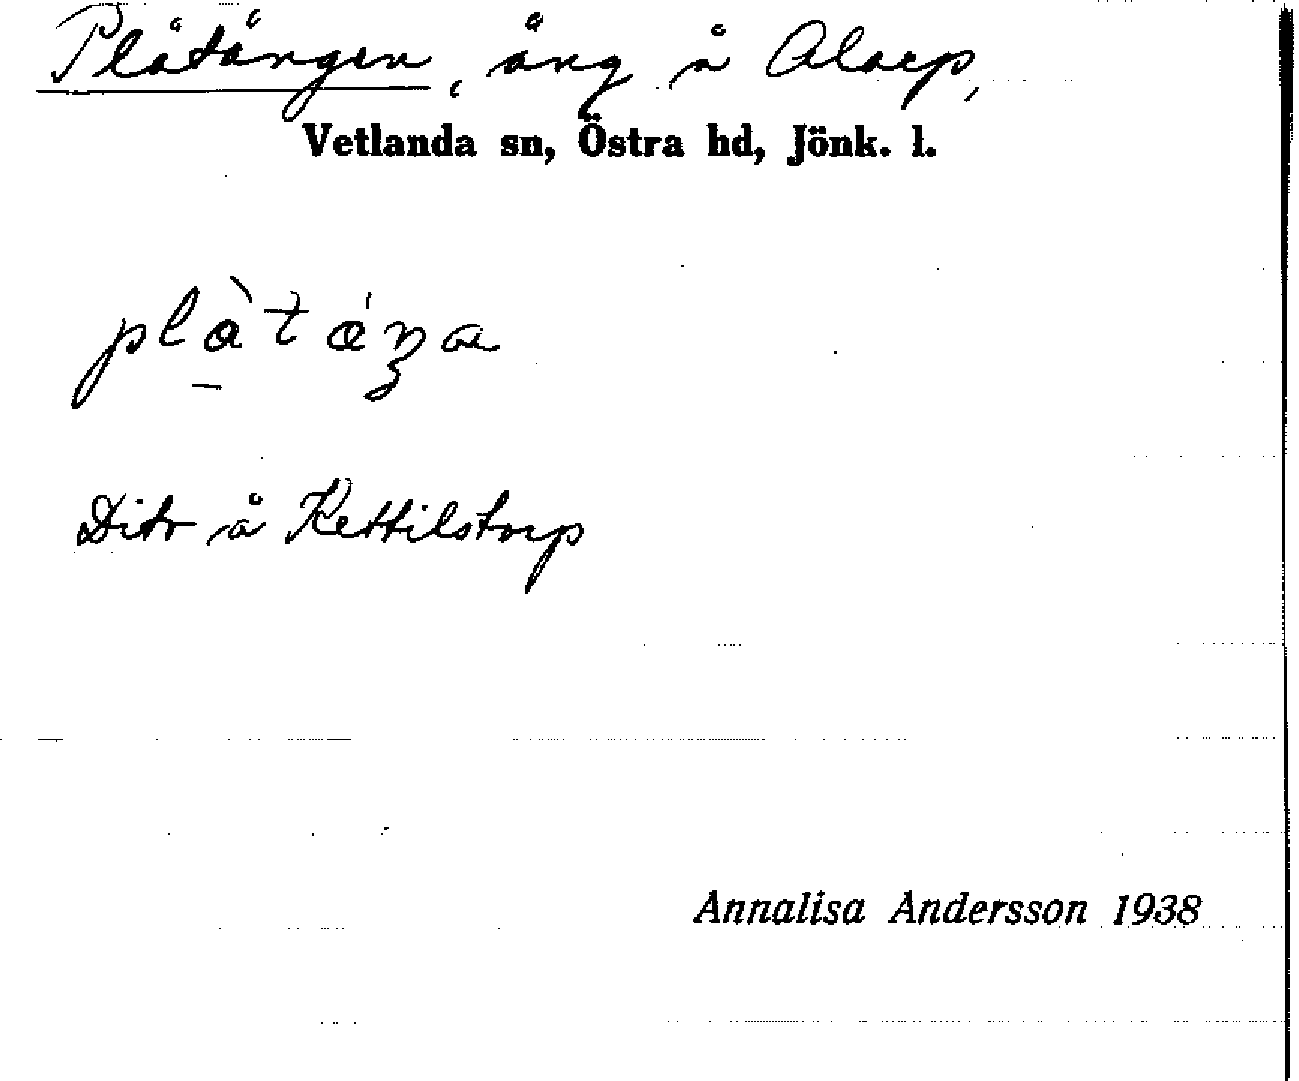 Plåtängen, äng å Alarp,
Vetlanda sn, Östra hd, Jönk. l.
Dito å Kettilstorp
Annalisa Andersson 1938